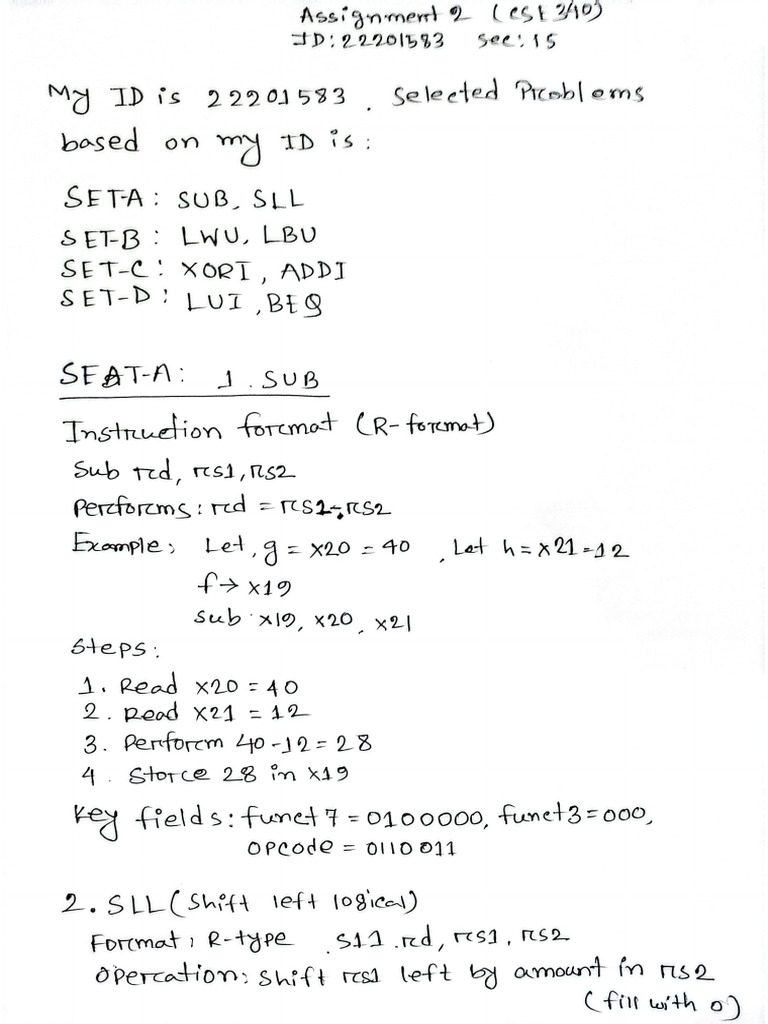 Assignment 2 (CSE 340)
ID: 22201583 sec: 15
My ID is 22201583. Selected Problems
based on my ID is:
SET-A: SUB, SLL
SET-B: LWU, LBU
SET-C: XORI, ADDI
SET-D: LUI, BEQ
SET-A: 1. SUB
Instruction format (R-format)
Sub rd, rs1, rs2
Performs: rd = rs1 - rs2
Example: Let, g = x20 = 40, Let h = x21 = 12
f → x19
sub x19, x20, x21
Steps:
1. Read x20 = 40
2. Read x21 = 12
3. Perform 40 - 12 = 28
4. Store 28 in x19
Key fields: funct7 = 0100000, funct3 = 000,
opcode = 0110011
2. SLL (Shift left logical)
Format: R-type sll rd, rs1, rs2
Operation: Shift rs1 left by amount in rs2
(fill with 0)